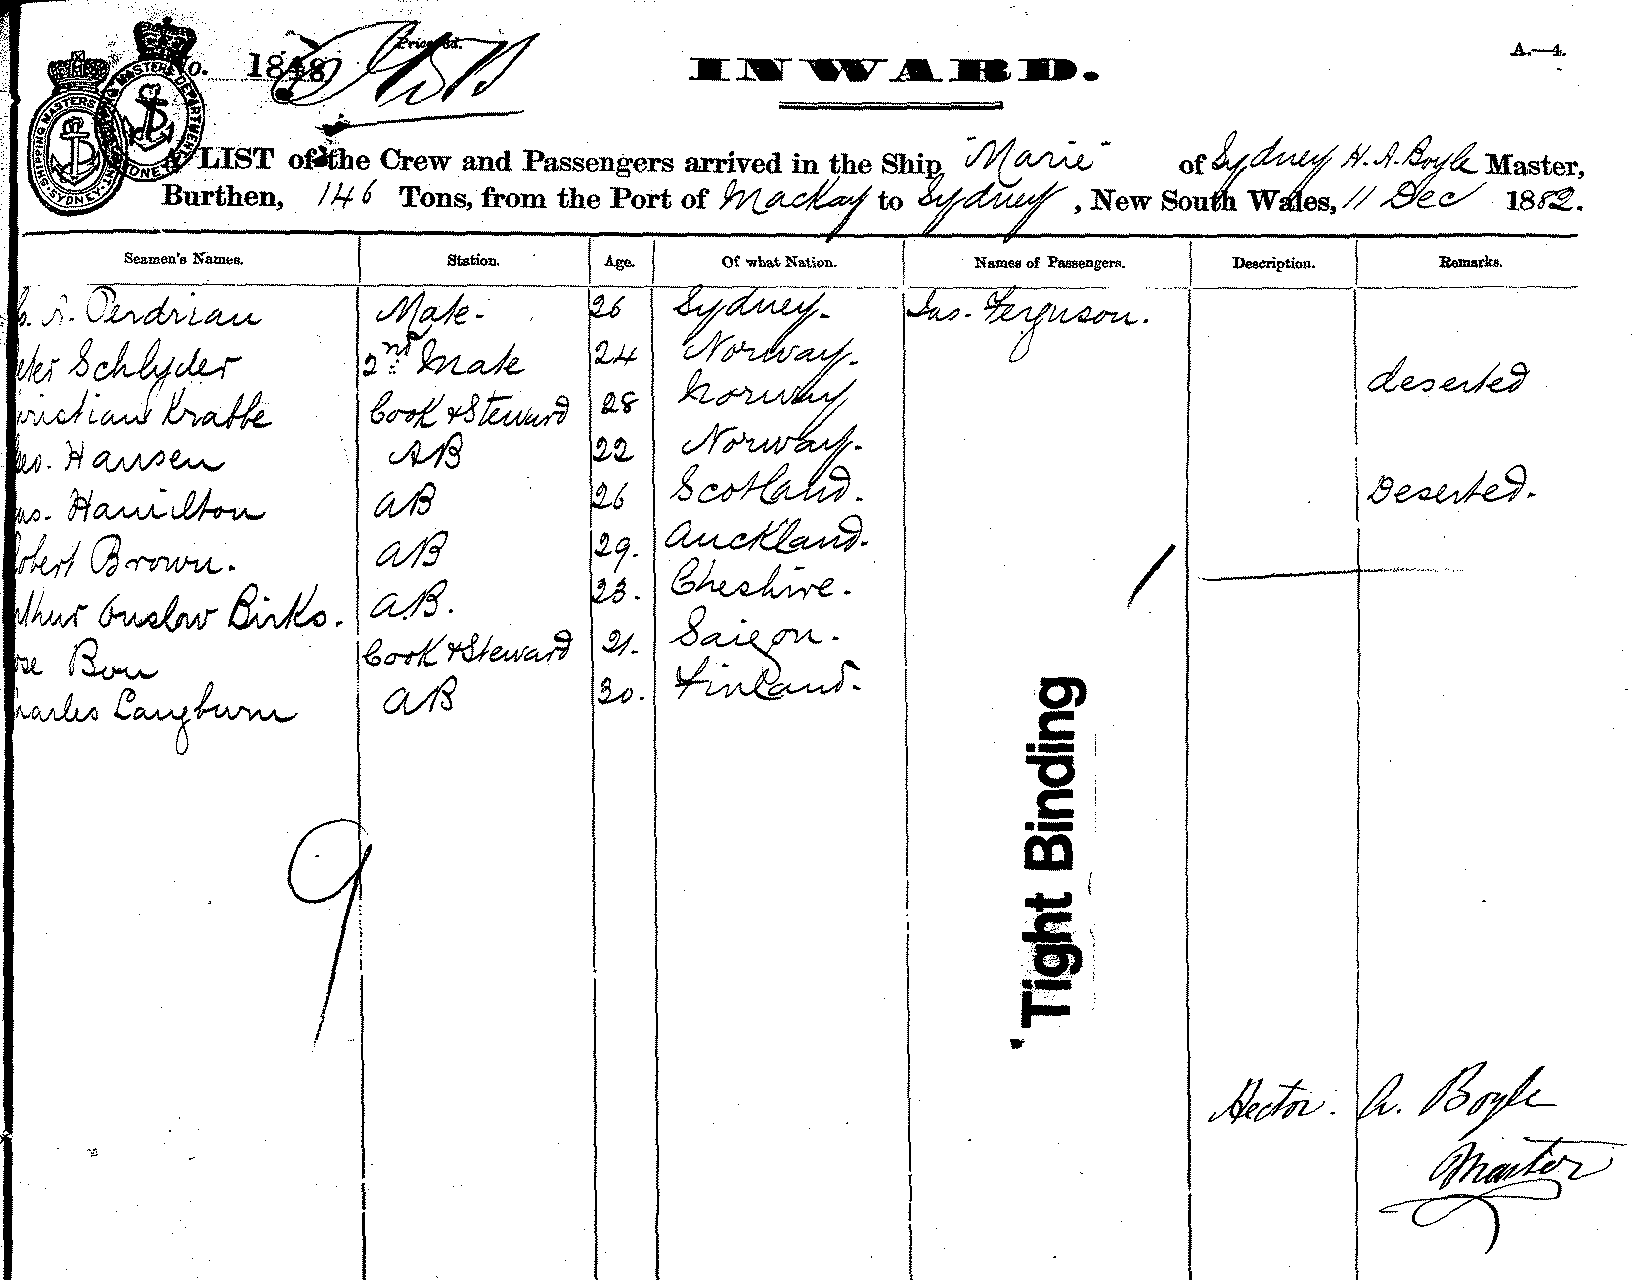 No. 1848 INWARD. A.—4.
A LIST of the Crew and Passengers arrived in the Ship "Marie" of Sydney H. A. Boyle Master,
Burthen, 146 Tons, from the Port of Mackay to Sydney, New South Wales, 11 Dec 1882.
Seamen's Names. Station. Age. Of what Nation. Names of Passengers. Description. Remarks.
A. Perdriau Mate. 26 Sydney. Jas. Ferguson.
eter Schlyder 2nd Mate 24 Norway.
ristian Krabbe Cook & Steward 28 Norway deserted
Hansen AB 22 Norway.
as. Hamilton AB 26 Scotland. Deserted.
obert Brown. AB 29. Auckland.
thur Onslow Birks. A.B. 23. Cheshire.
ose Bou Cook & Steward 21. Saigon.
harles Langburn AB 30. Finland.
9
Tight Binding
Hector. A. Boyle
Master